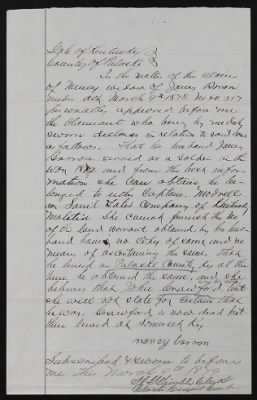 State of Kentucky
County of Pulaski
In the matter of the claim
of Nancy widow of James Barron
under act March 9th 1878. No 20.357
personally appeared before me
the Claimant who being by me duly
sworn declares in relation to said claim
as follows. That her husband James
Barron served as a soldier in the
War 1812 and from the best infor-
mation she can obtain he be-
longed to either Captain McDowell
or Saml Tates Company of Kentucky
Malitia She cannot furnish the No
of the land warrant obtained by her hus-
band having no copy of same and no
means of ascertaining the same, That
he lived in Pulaski County Ky at the
time he obtained the same, and she
believes that Crawford but
she will not state for certain that
he was, Crawford is now dead but
then lived at Somerset Ky
nancy barron
Subscribed & sworn to before
me this March 1879
Clerk
Pulaski County Court